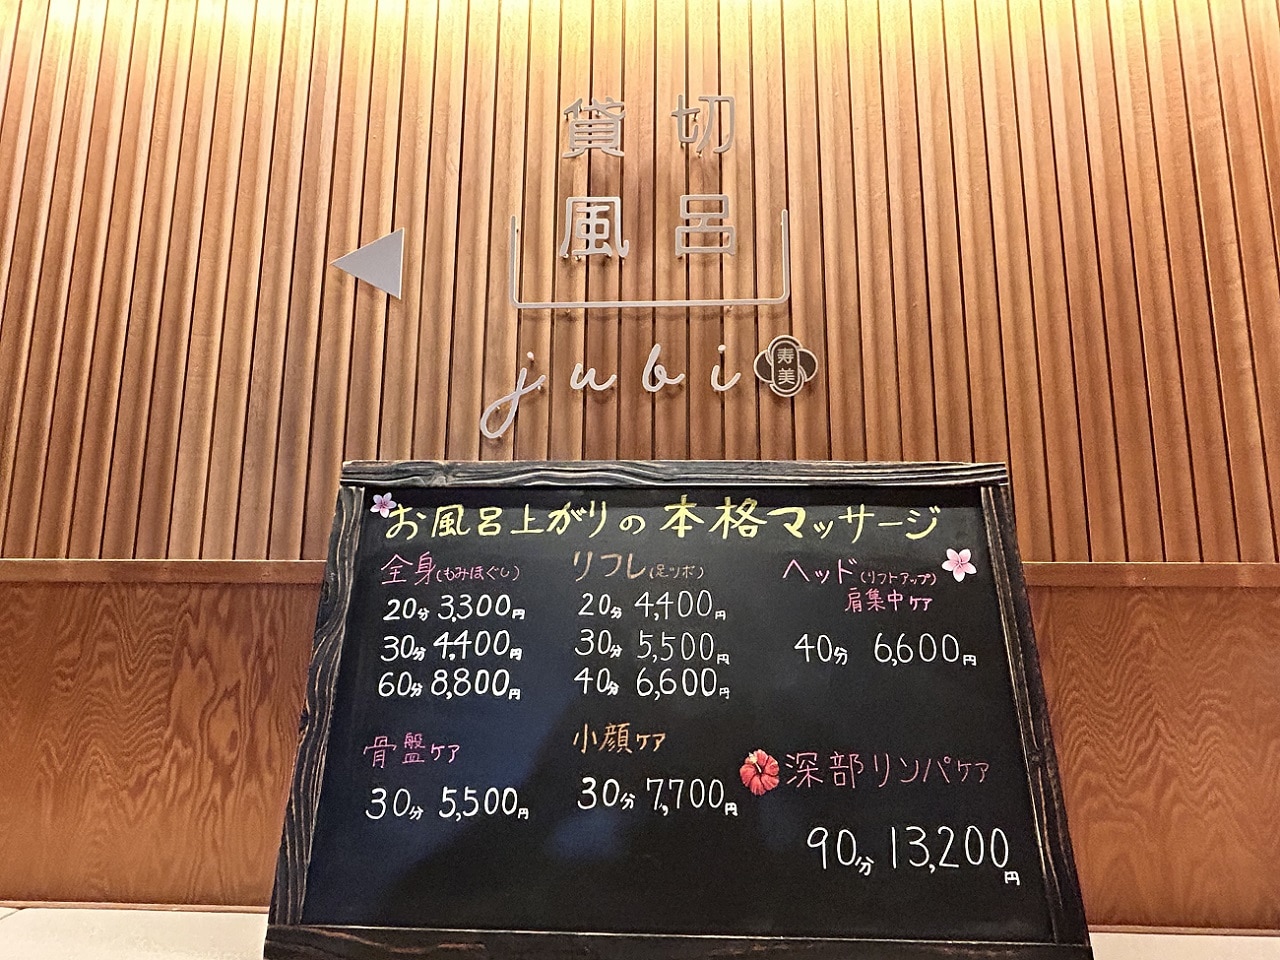 貸切
風呂
jubi
寿美
お風呂上がりの本格マッサージ
全身(もみほぐし)
20分 3,300円
30分 4,400円
60分 8,800円
リフレ(足ツボ)
20分 4,400円
30分 5,500円
40分 6,600円
ヘッド(リフトアップ)
肩集中ケア
40分 6,600円
骨盤ケア
30分 5,500円
小顔ケア
30分 7,700円
深部リンパケア
90分 13,200円